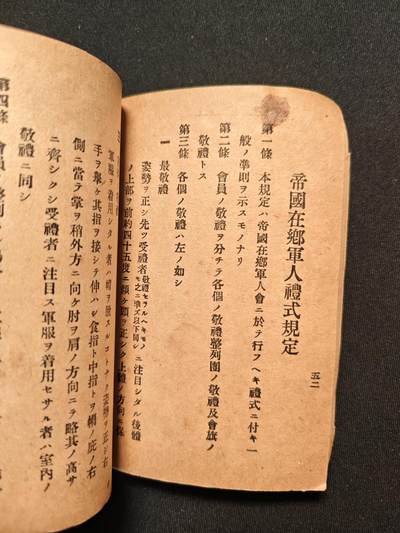 帝國在鄉軍人禮式規定
五二
第一條 本規定ハ帝國在鄉軍人會ニ於テ行フヘキ禮式ニ付キ一
般ノ準則ヲ示スモノナリ
第二條 會員ノ敬禮ヲ分チテ各個ノ敬禮整列團ノ敬禮及會旗ノ
敬禮トス
第三條 各個ノ敬禮ハ左ノ如シ
一 最敬禮
姿勢ヲ正シ先ツ受禮者敬禮セラルヘキモノヲ之ニ準ズ以下同シニ注目シタル後體
ノ上部ヲ前約四十五度ニ傾ケ頭ヲ正シク上體ノ方向ニ保
軍服ヲ着用シタル者ハ帽ヲ脫スルコトナク姿勢ヲ正シ右
手ヲ擧ケ其指ヲ接シテ伸ハシ食指ト中指トヲ帽ノ庇ノ右
側ニ當テ掌ヲ稍外方ニ向ケ肘ヲ肩ノ方向ニテ略其ノ高サ
ニ齊シクシ受禮者ニ注目ス軍服ヲ着用セサル者ハ室內ノ
敬禮ニ同シ
第四條 會員整列